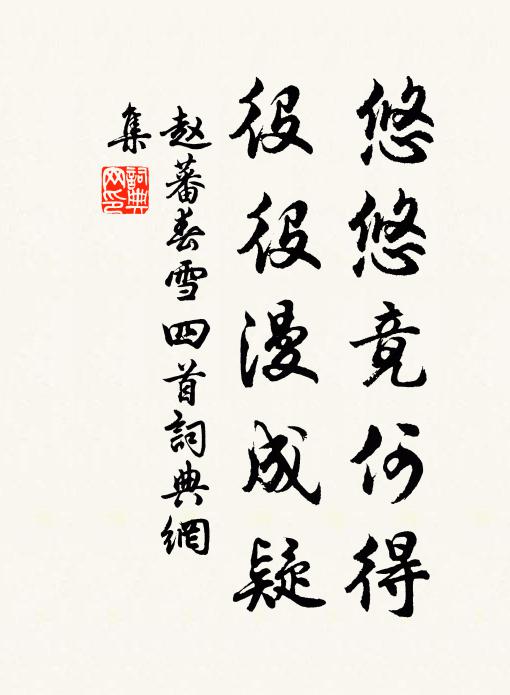 悠悠竟何得
役役漫成疑
赵蕃春雪四首詞典網
集
詞典
网印